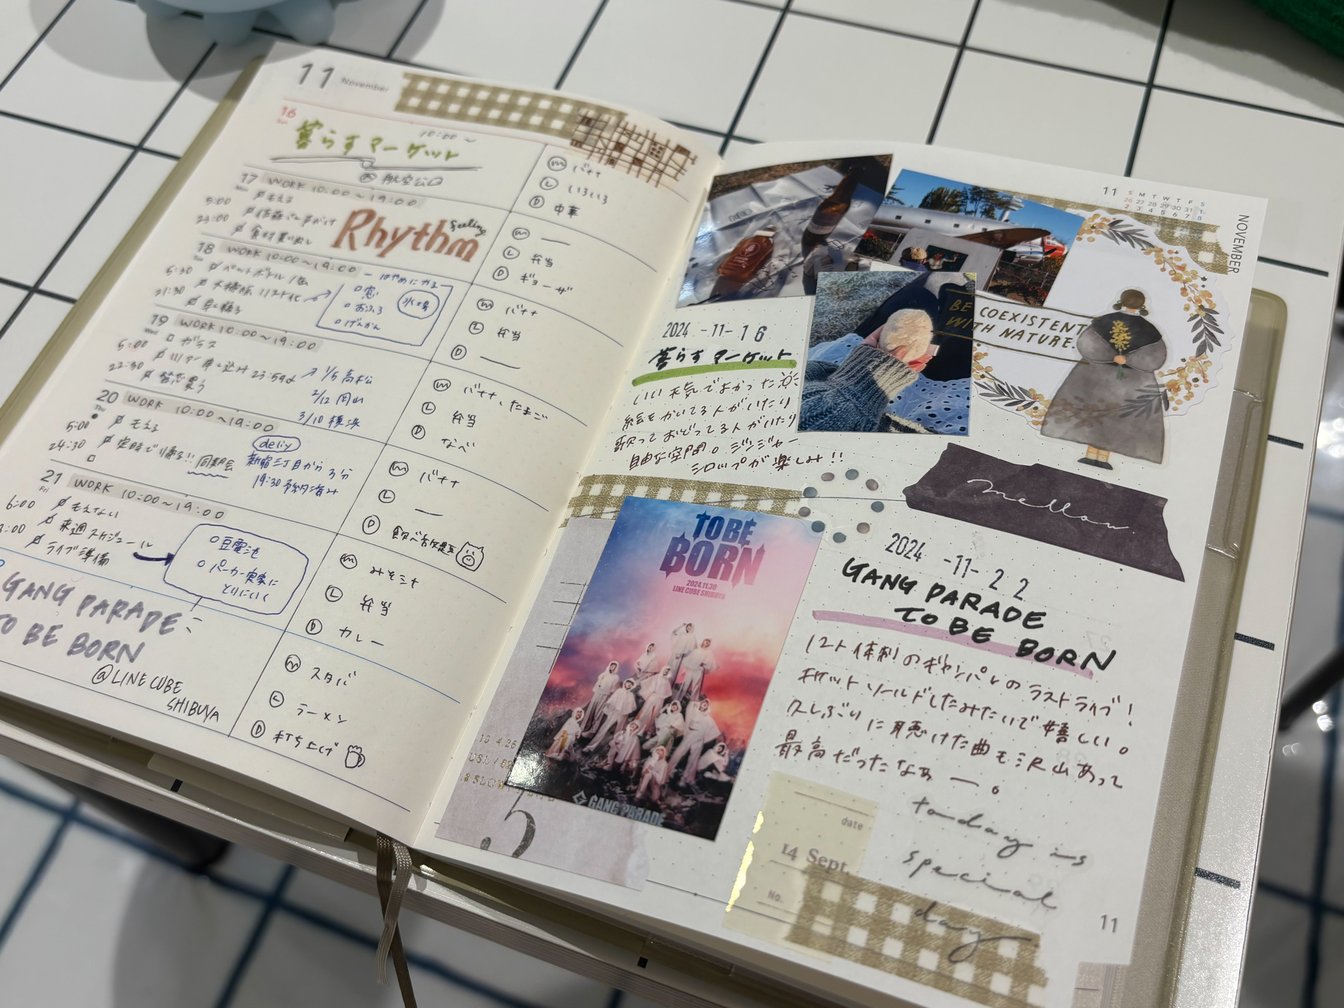 11 November
16
10:00〜
暮らすマーケット
@航空公園
17 WORK 10:00〜19:00
5:00 もえる
23:00
食材買い出し
Rhythm
feeling
18 WORK 10:00〜19:00
6:30 ペットボトル/缶
大掃除リスト化
21:30
窓
おふろ
げんかん
19 WORK 10:00〜19:00
ガラス
23:59
1/5 高松
2/12 岡山
3/10 横浜
22:30
20 WORK 10:00〜19:00
5:00 もえる
24:30 定時で帰る!! 同期会
新宿三丁目から3分
19:30 予約済み
21 WORK 10:00〜19:00
6:00 もえない
来週スケジュール
ライブ準備
豆電池
パーカー実家に
とりにいく
GANG PARADE
TO BE BORN
@LINE CUBE
SHIBUYA
M バナナ
L いろいろ
D 中華
M —
L 弁当
D ギョーザ
M バナナ
L 弁当
D —
M バナナ、たまご
L 弁当
D なべ
M バナナ
L —
D 食べ放題
M
L 弁当
D カレー
M スタバ
L ラーメン
D 打ち上げ
11 S M T W T F S
NOVEMBER
COEXISTENT
WITH NATURE.
2024 -11- 16
暮らすマーケット
いい天気でよかった
絵をかいてる人がいたり
歌っておどってる人がいたり
自由な空間。ジンジャー
シロップが楽しみ!!
mellow
TO BE
BORN
2024.11.30
LINE CUBE SHIBUYA
GANG PARADE
5
2024 -11- 22
GANG PARADE
TO BE BORN
12人体制のギャンパレのラストライブ!
チケットソールドしたみたいで嬉しい。
久しぶりに聴けた曲も沢山あって
最高だったなぁー。
today is
special
day
date
14 Sept.
No.
11